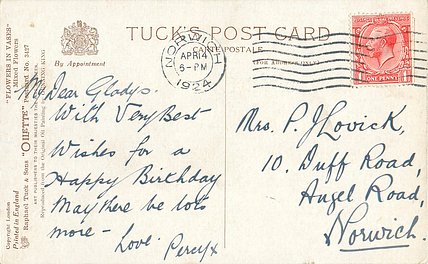 TUCK'S POST CARD
CARTE POSTALE
(FOR ADDRESS ONLY)
By Appointment
"FLOWERS IN VASES"
Mixed Flowers
Raphael Tuck & Sons "OILETTE" Postcard No. 3197.
ART PUBLISHERS TO THEIR MAJESTIES THE KING
Reproduced from the Original Oil Painting
Copyright London
Printed in England
NORWICH
APR 14
5-PM
1924
ONE PENNY
My Dear Gladys.
With Very Best
Wishes for a
Happy Birthday
May there be lots
more -
Love. Percy x
Mrs. P. J Lovick,
10. Duff Road,
Angel Road,
Norwich.